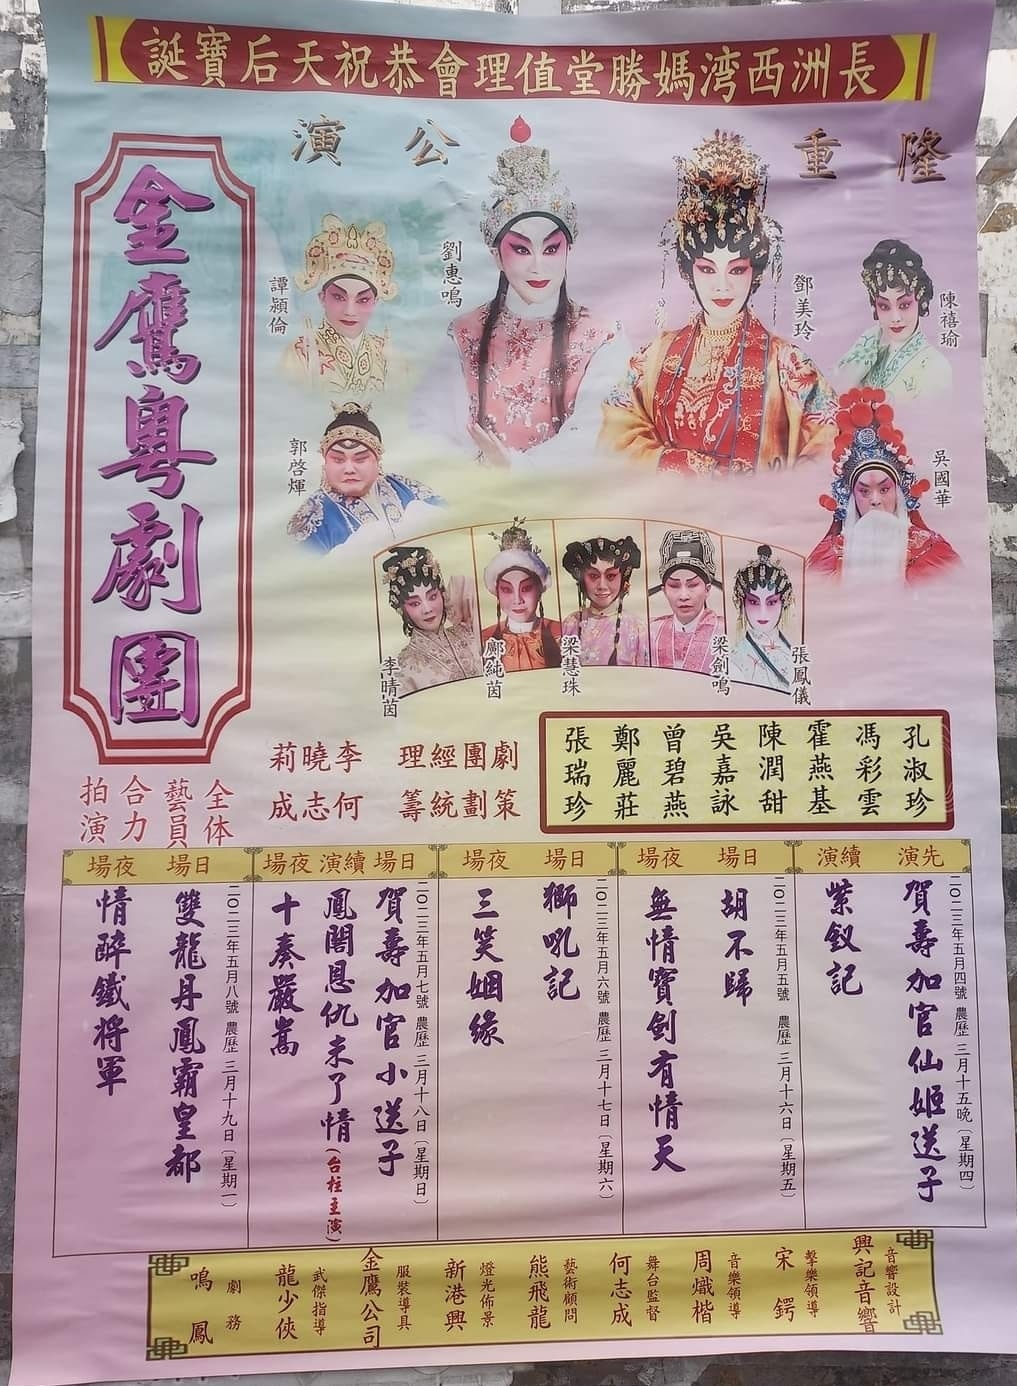 長洲西湾媽勝堂值理會恭祝天后寶誕
隆重公演
金鷹粵劇團
譚穎倫
劉惠鳴
鄧美玲
陳禧瑜
郭啓煇
吳國華
李晴茵
鄺純茵
梁慧珠
梁劍鳴
張鳳儀
劇團經理 李曉莉
策劃統籌 何志成
孔淑珍
馮彩雲
霍燕基
陳潤甜
吳嘉詠
曾碧燕
鄭麗莊
張瑞珍
全体藝員合力拍演
先演 續演
二〇二三年五月四號 農歷 三月十五晚(星期四)
賀壽加官仙姬送子
紫釵記
日場 夜場
二〇二三年五月五號 農歷 三月十六日(星期五)
胡不歸
無情寶劍有情天
日場 夜場
二〇二三年五月六號 農歷 三月十七日(星期六)
獅吼記
三笑姻緣
日場 續演 夜場
二〇二三年五月七號 農歷 三月十八日(星期日)
賀壽加官小送子
鳳閣恩仇未了情(台柱主演)
十奏嚴嵩
日場 夜場
二〇二三年五月八號 農歷 三月十九日(星期一)
雙龍丹鳳霸皇都
情醉鐵將軍
音響設計 興記音響
擊樂領導 宋鍔
音樂領導 周熾楷
舞台監督 何志成
藝術顧問 熊飛龍
燈光佈景 新港興
服裝導具 金鷹公司
武傑指導 龍少俠
劇務 鳴鳳